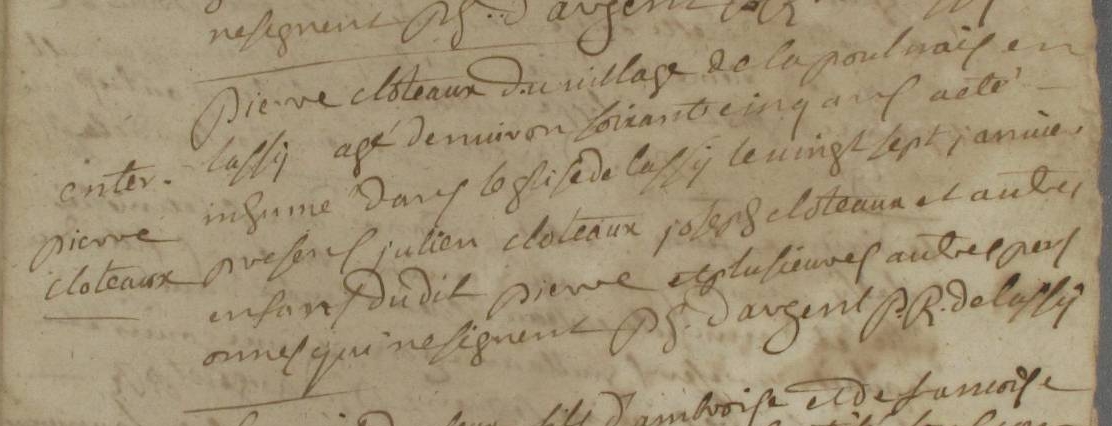 nesignent Ph. d'argent P.R.
pierre cloteaux du village de la poulnais en
lassy agé denviron soixante cinq ans a eté
enter. inhumé dans leglise de lassy le vingt sept janvier
pierre presens julien cloteaux joseph cloteaux et autres
cloteaux enfans dudit pierre et plusieures autres pers
onnes qui ne signent Ph. d'argent P.R. de lassy
fils d'ambroise et de francoise